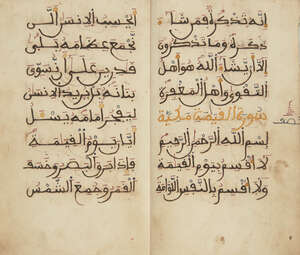 إنه تذكرة فمن شاء
ذكره وما تذكرون
إلا أن يشاء الله هو أهل
التقوى وأهل المغفرة
سورة القيمة مكية
بسم الله الرحمن الرحيم
لا أقسم بيوم القيمة
ولا أقسم بالنفس اللوامة
أيحسب الإنسن ألن
نجمع عظامه بلى
قدرين على أن نسوي
بنانه بل يريد الإنسن
ليفجر أمامه يسئل
أيان يوم القيمة
فإذا برق البصر وخسف
القمر وجمع الشمس